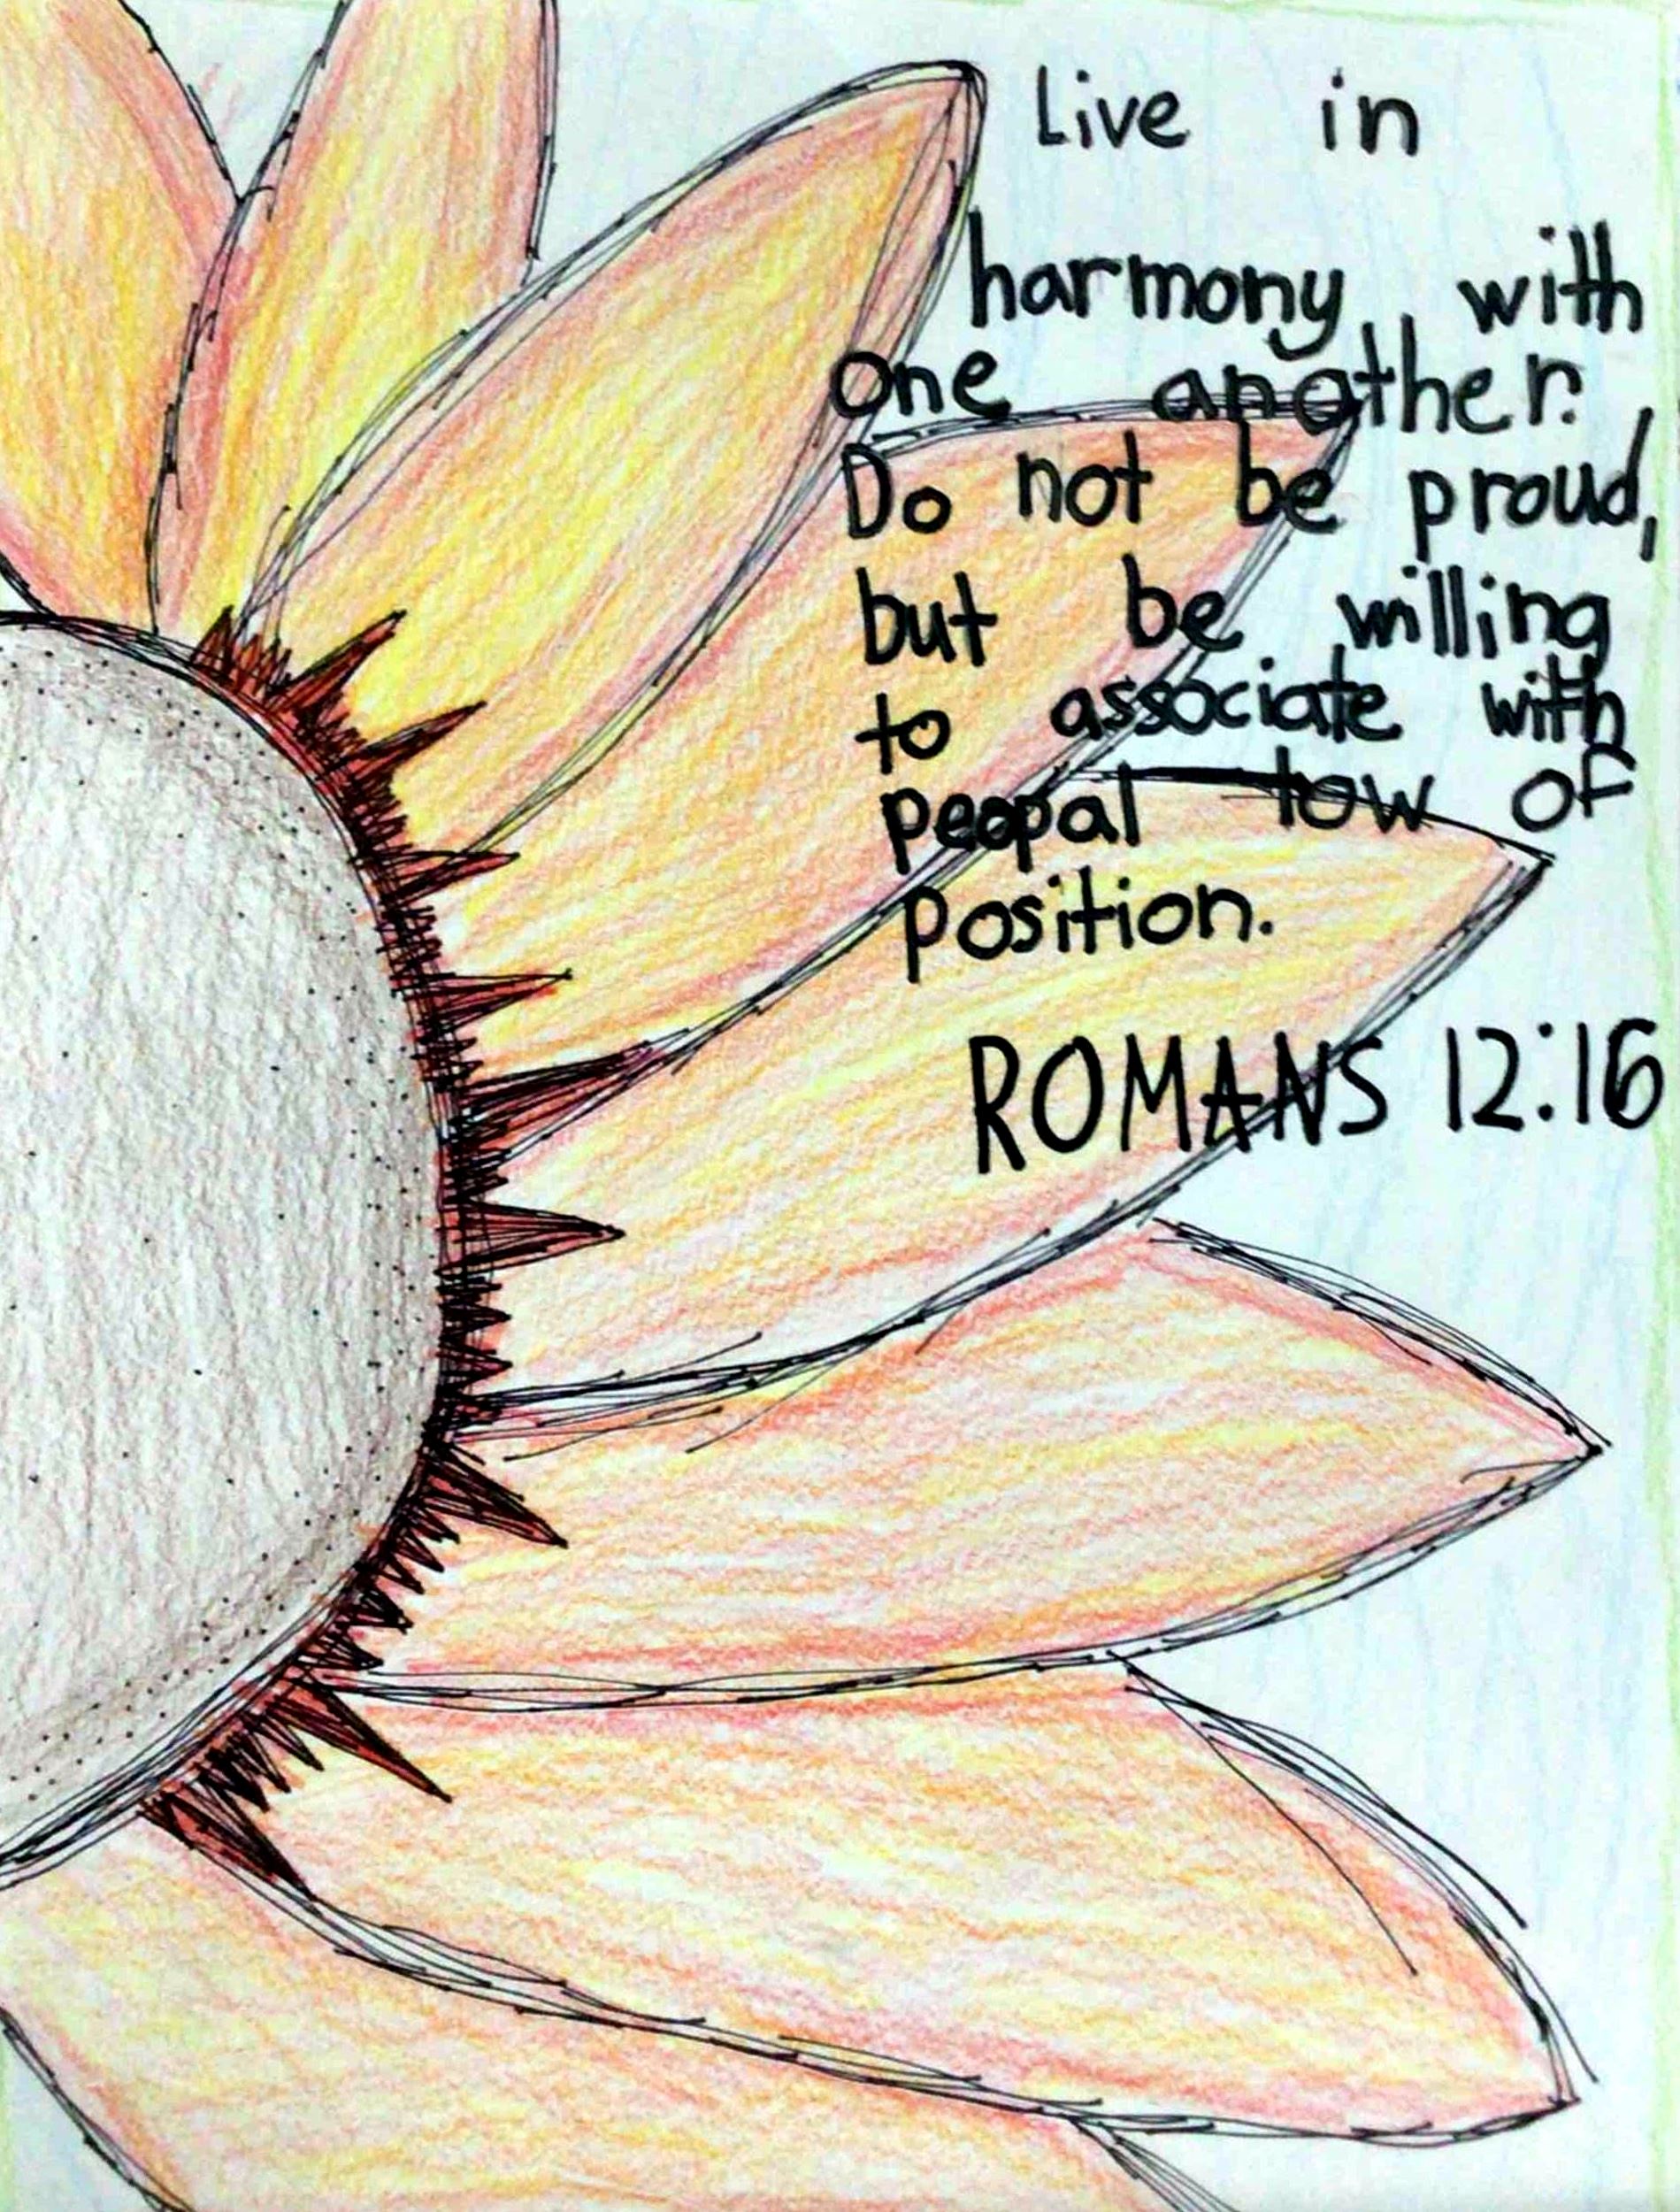 Live in
harmony with
one another.
Do not be proud,
but be willing
to associate with
peopal low of
position.
ROMANS 12:16